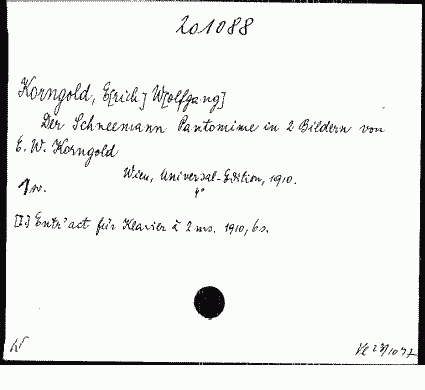 201088
Korngold, E[rich] W[olfgang]
Der Schneemann Pantomime in 2 Bildern von
E. W. Korngold
Wien, Universal-Edition, 1910.
4°
1 w.
[I] Entr'act für Klavier à 2 ms. 1910, 6 s.
W